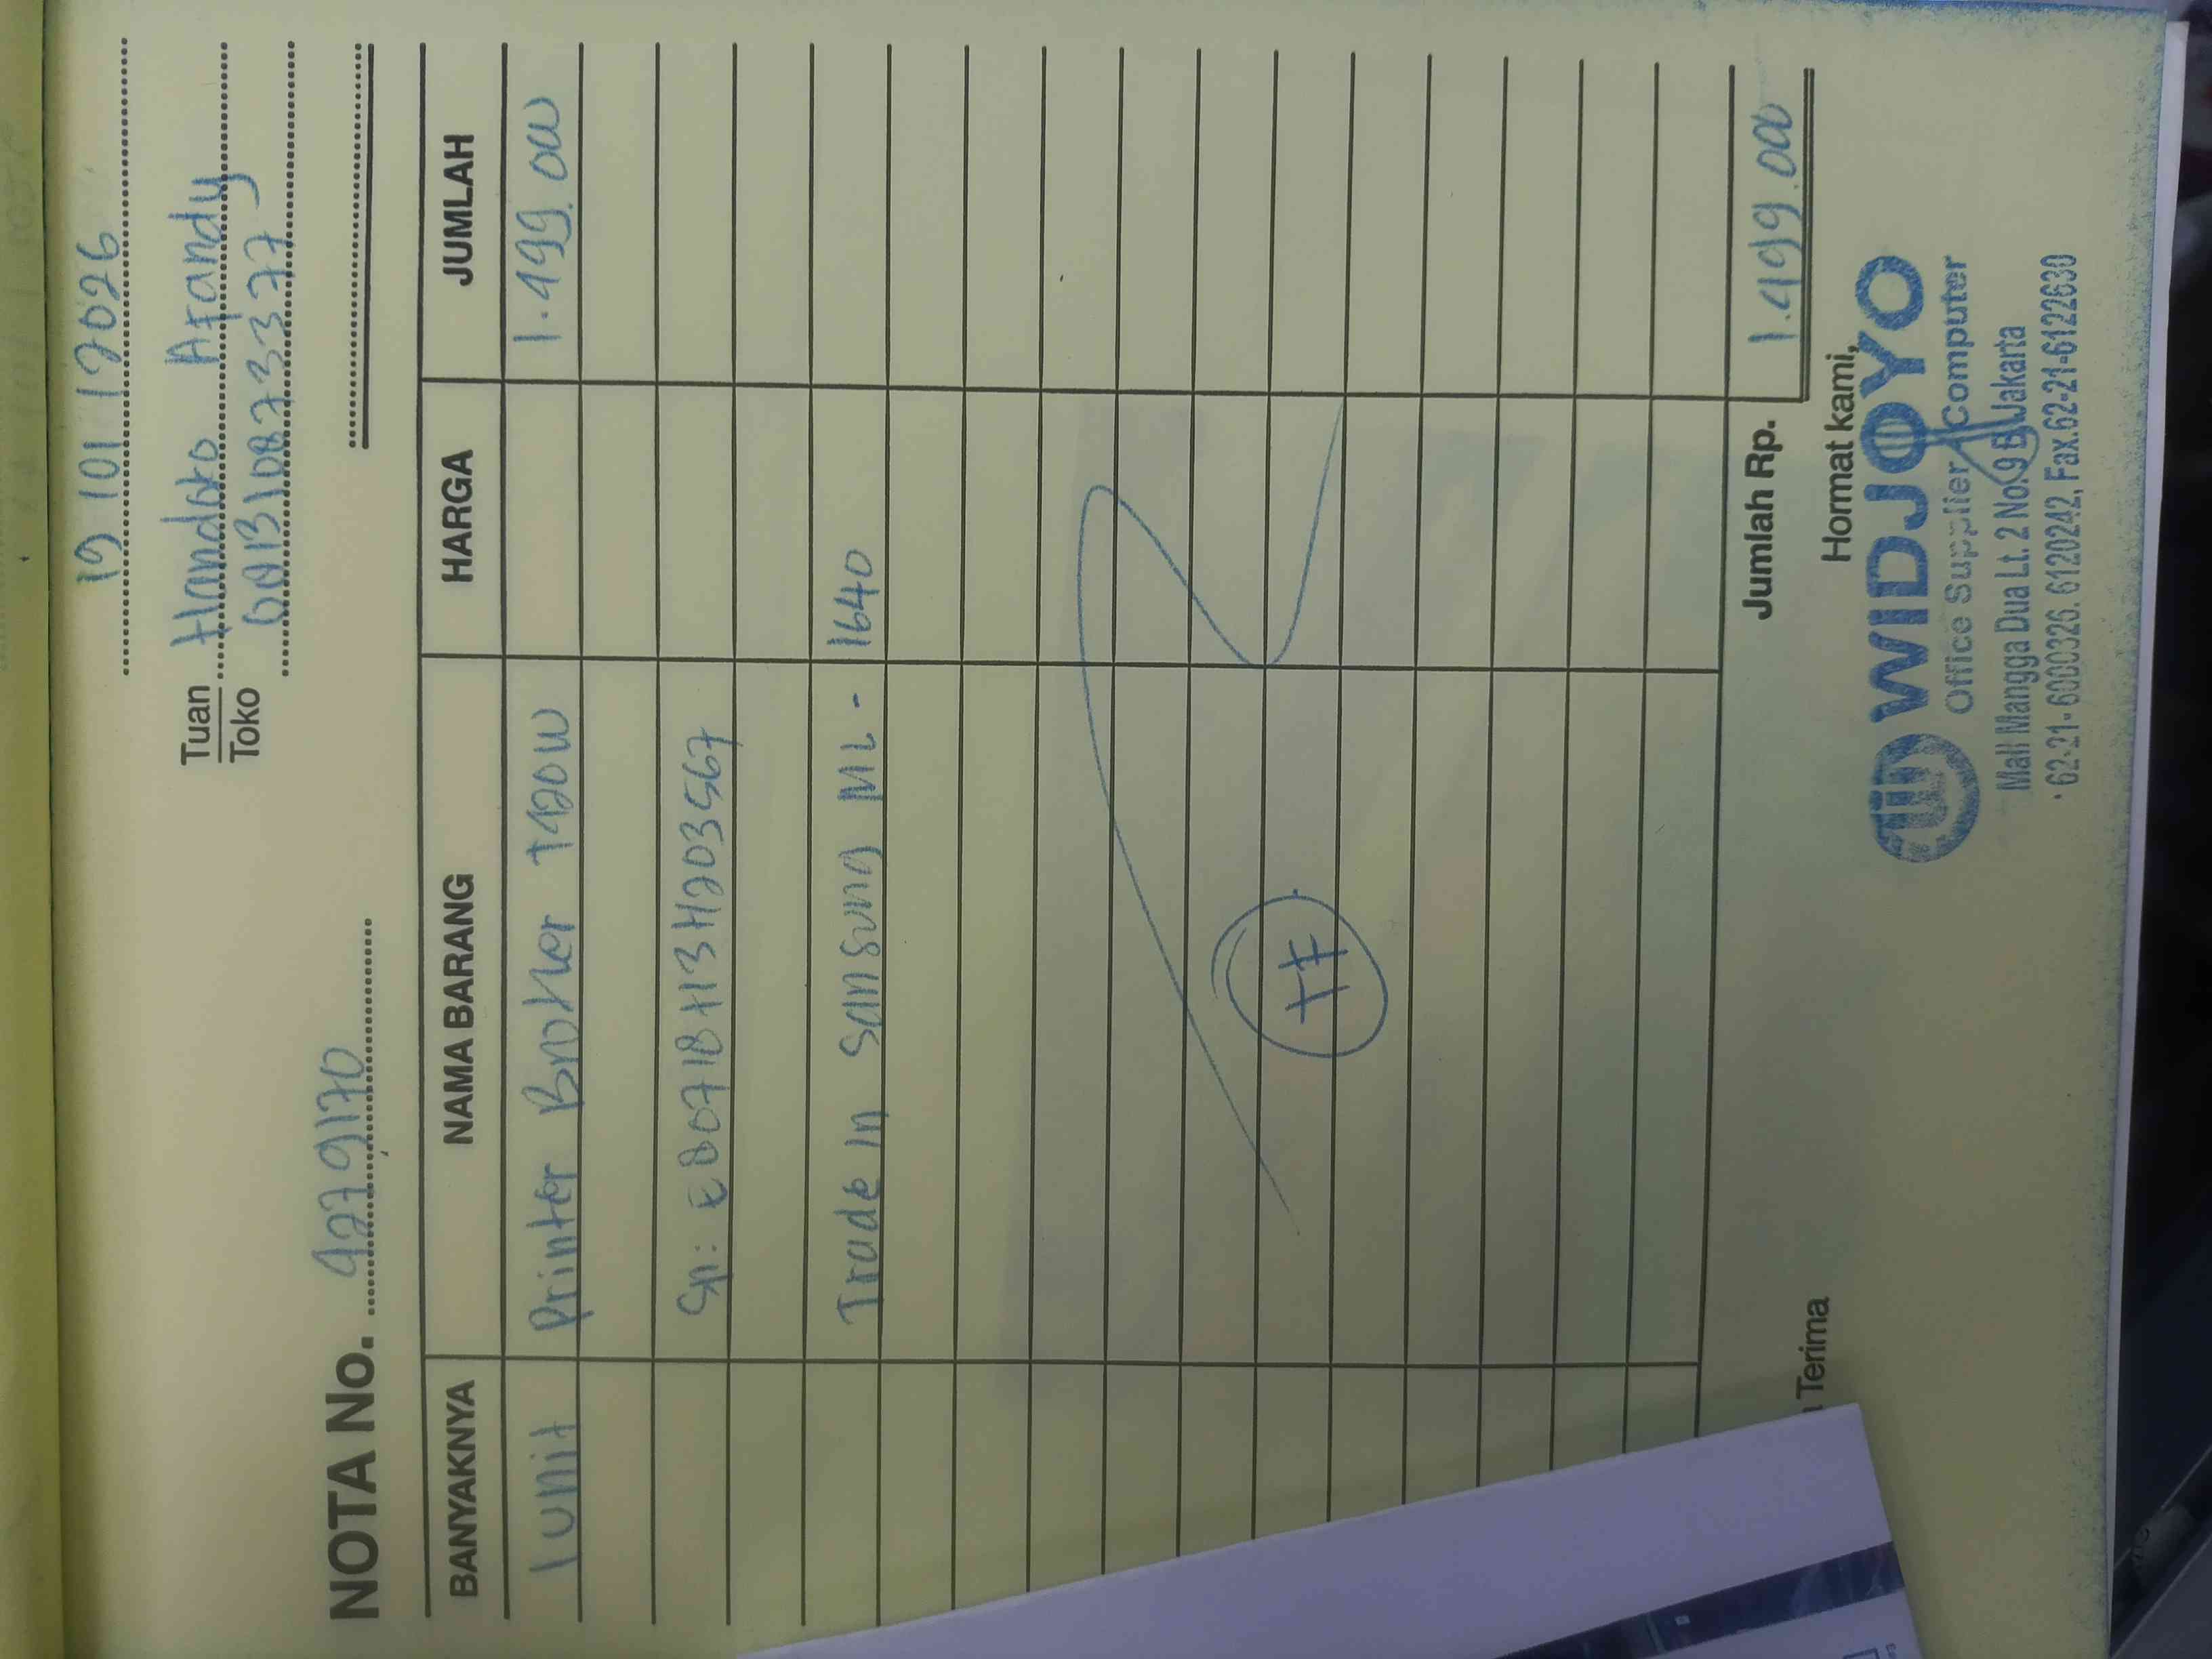 19 / 01 / 2026
Tuan Handoko Afandy
Toko 081310873377
NOTA No. 4279170
BANYAKNYA NAMA BARANG HARGA JUMLAH
1 unit Printer Brother T420W 1.499.000
Sn: E80718H3H203567
Trade In Samsung ML - 1640
TF
Jumlah Rp. 1.499.000
Terima Hormat kami,
WIDJOYO
Office Supplier Computer
Mall Mangga Dua Lt. 2 No. 9 B Jakarta
62-21-6000326. 6120242, Fax.62-21-6122630